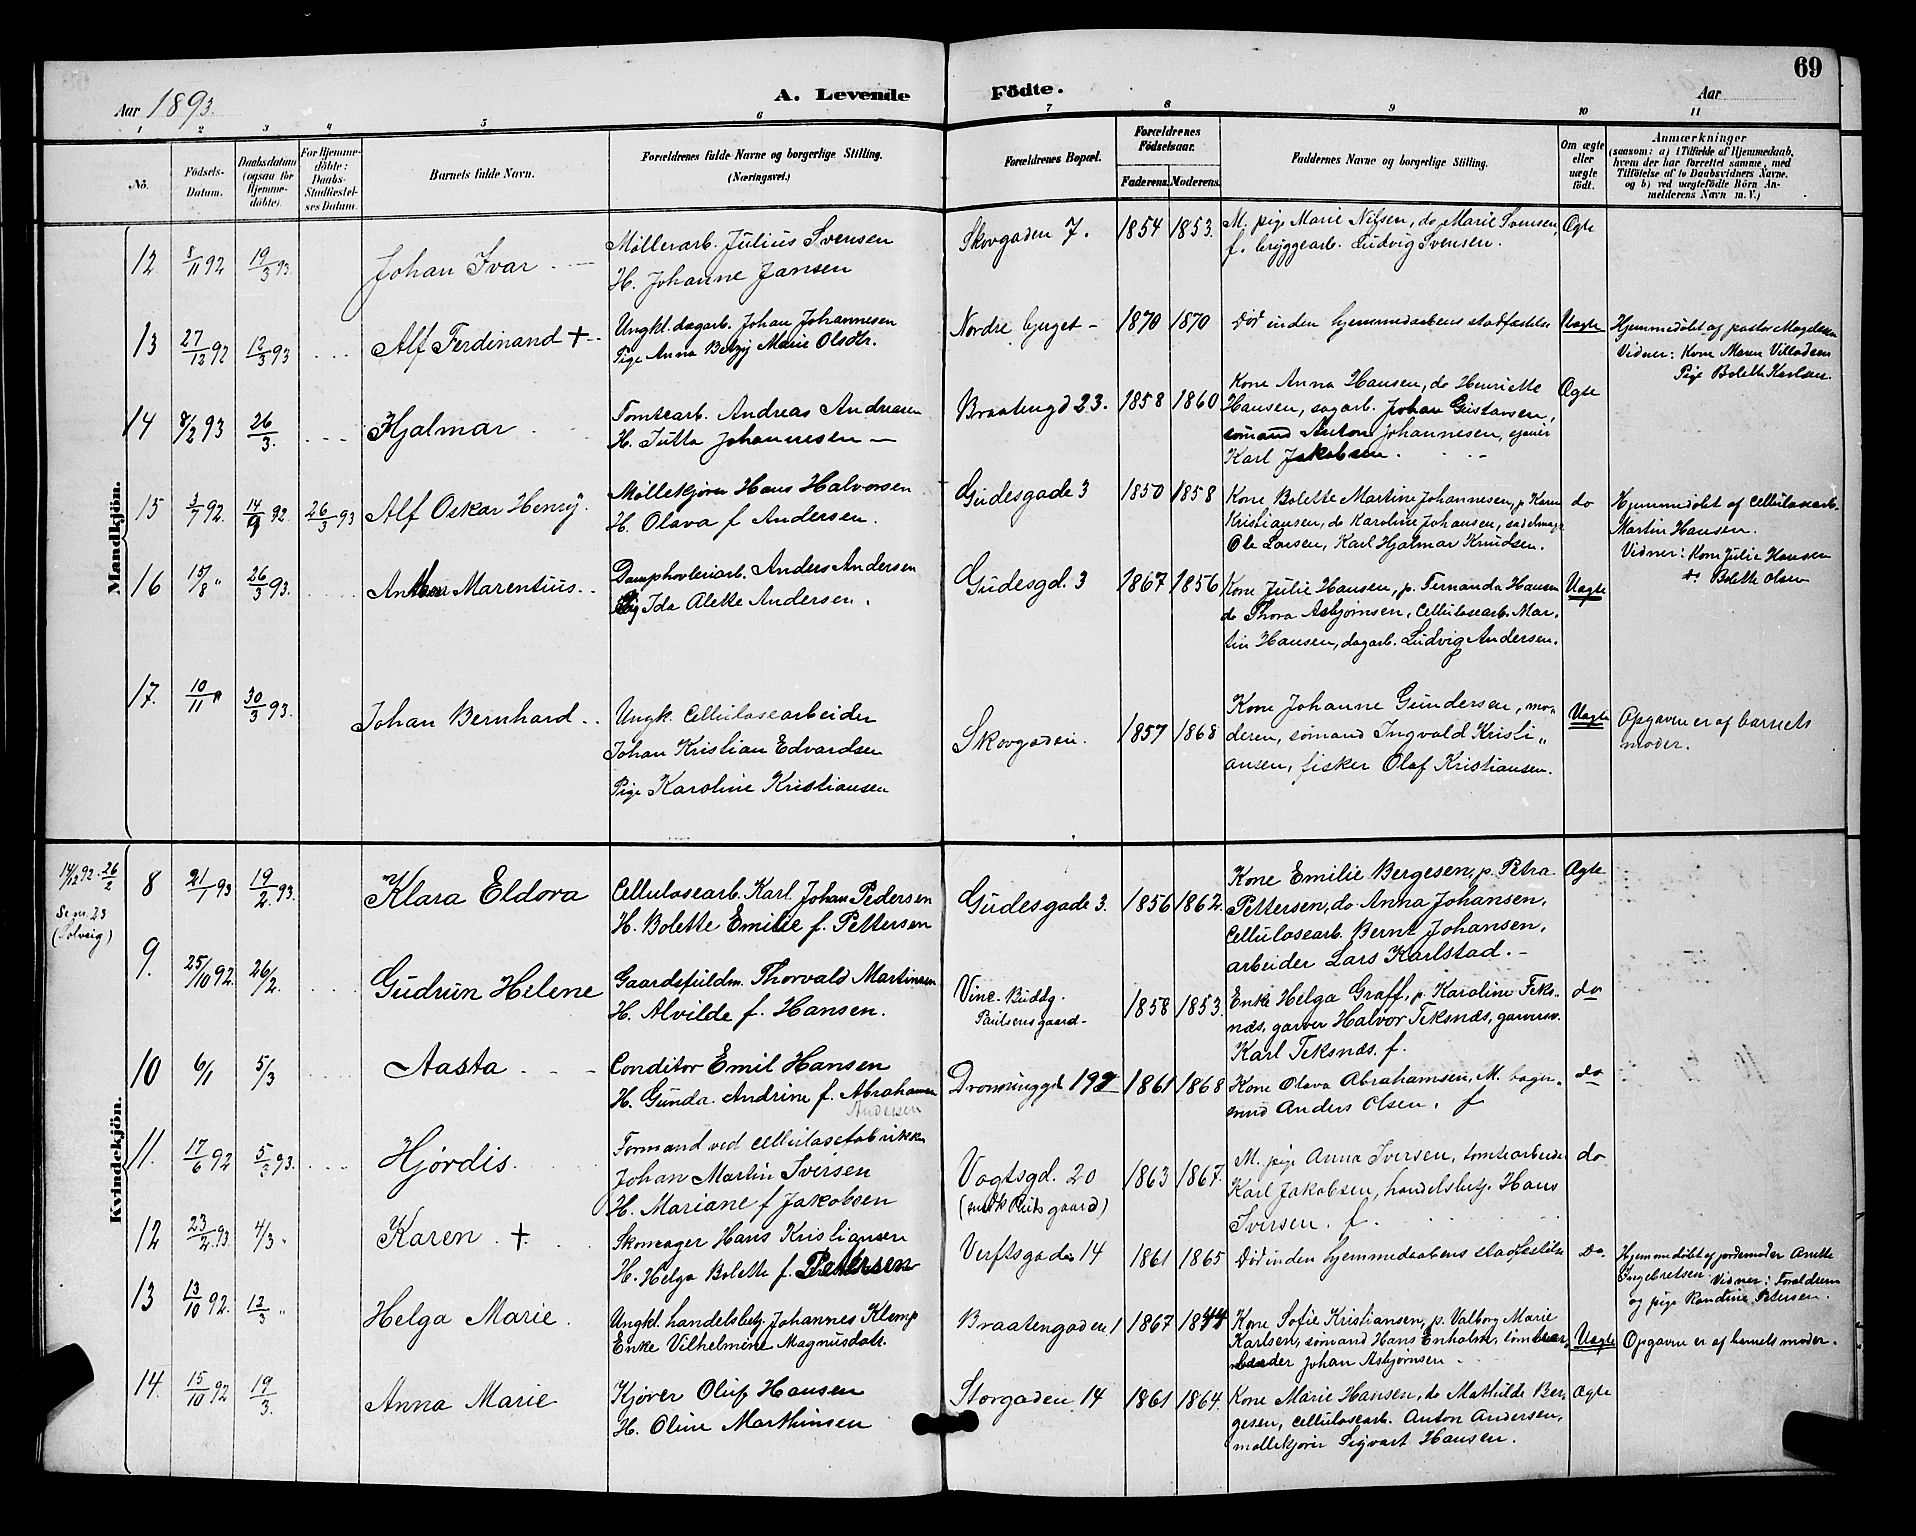 69
Aar 1893.
A. Levende Födte.
Aar
1 2 3 4 5 6 7 8 9 10 11
No.
Födsels-Datum.
Daabsdatum (ogsaa for Hjemme-döbte).
For Hjemme-döbte: Daabs-Stadfæstel-ses Datum.
Barnets fulde Navn.
Forældrenes fulde Navne og borgerlige Stilling.
(Næringsvei.)
Forældrenes Bopæl.
Forældrenes Födselsaar.
Faderens. Moderens.
Faddernes Navne og borgerlige Stilling.
Om ægte eller uægte födt.
Anmærkninger
(saasom: a) i Tilfælde af Hjemmedaab,
hvem der har forrettet samme, med
Tilföielse af to Daabsvidners Navne.
og b) ved uægtefödte Börn An-
melderens Navn m. V.)
Mandkjön.
12 8/11 92 19/3 93. Johan Ivar
Møllerarb. Julius Svensen
H. Johanne Jansen
Skovgaden 7. 1854 1853.
M. pige Marie Nilsen, do Marie Svensen,
f. bryggearb. Ludvig Svensen.
Ægte
13 27/12 92 12/3 93 Alf Ferdinand +
Ungkl. dagarb. Johan Johannesen
Pige Anna Betzy Marie Olsdtr.
Nordre 1870 1870
Død inden hjemmedaabens stadfæstelse
Uægte
Hjemmedøbt af pastor Magelssen
Vidner: Kone Maren Villadsen
Pige Bolette Karlsen.
14 8/2 93 26/3. Hjalmar
Tomtearb. Andreas Andreasen
H. Jutta Johannesen
Braatengd 23. 1858 1860
Kone Anna Hansen, do Henriette
Hansen, sagarb. Johan Gustavsen,
sømand Anton Johannesen, eier
Karl Jakobsen.
Ægte
15 3/7 92. 14/9 92. 26/3 93 Alf Oskar Henry
Møllekjører Hans Halvorsen
H. Olava f Andersen.
Gudesgade 3 1850 1858
Kone Bolette Martine Johannesen, p. Karen
Kristiansen, do Karoline Johansen, sadelmager
Ole Larsen, Karl Hjalmar Knudsen.
do
Hjemmedøbt af Cellulosearb.
Martin Hansen.
Vidner: Kone Julie Hansen
do Bolette Olsen
16 15/8 " 26/3 93. Marentius
Damphøvleriarb. Anders Andersen
Pig Ida Alette Andersen.
Gudesgd. 3 1867 1856
Kone Julie Hansen, p. Fernanda Hansen
do Thora Asbjørnsen, Cellulosearb. Mar-
tin Hansen, dagarb. Ludvig Andersen.
Uægte
17. 10/11 " 30/3 93. Johan Bernhard
Ungk. Cellulosearbeider
Johan Kristian Edvardsen
Pige Karoline Kristiansen
Skovgaden. 1857 1868
Kone Johanne Gundersen, mo-
deren, sømand Ingvald Kristi-
ansen, fisker Olaf Kristiansen.
Uægte
Opgaven er af barnets
moder.
Kvindekjön.
14/12 92 - 26/2
Se nr. 23
(Solveig)
8 21/1 93 19/2 93. Klara Eldora
Cellulosearb. Karl Johan Pedersen
H. Bolette Emilie f. Pettersen
Gudesgade 3. 1856 1862.
Kone Emilie Bergesen, p. Petra
Pettersen, do Anna Johansen,
Cellulosearb. Bernt Johansen,
arbeider Lars Karlstad.
Ægte
9. 25/10 92. 26/2. Gudrun Helene
Gaardsfuldm. Thorvald Martinsen
H. Alvilde f. Hansen.
Vine-Buddg.
Paulsensgaard- 1858 1853.
Enke Helga Graff, p. Karoline Teks-
næs, garver Halvor Teksnæs, garversv.
Karl Teksnæs. f.
do
10 6/1 5/3 Aasta
Conditor Emil Hansen
H. Gunda Andrine f. Abrahamsen
Andersen
Dronninggd 1861 1868
Kone Olava Abrahamsen, M. bager-
svend Anders Olsen. f
do
11. 17/6 92 5/3 93. Hjørdis.
Formand ved cellulosefabrikken
Johan Martin Iversen
H. Mariane f Jakobsen
Vogtsgd. 20
1863 1867.
M. pige Anna Iversen, tomtearbeider
Karl Jakobsen, handelsbetj. Hans
Iversen. f.
do
12 23/2 93 4/3 Karen +
Skomager Hans Kristiansen
H. Helga Bolette f. Pettersen
Verftsgaden 14 1861 1865
Død inden hjemmedaabens stadfæstelse
Do.
Hjemmedøbt af jordemoder Anette
Ingebretsen. Vidner: Forældrene
og pige Randine Petersen.
13 13/10 92. 13/3 " Helga Marie.
Ungkl. handelsbetj. Johannes Klemp
Enke Vilhelmine Magnusdatr.
Braatengaden 1 1867 1844
Kone Sofie Kristiansen, p. Valborg Marie
Karlsen, sømand Hans Enholm,
Johan Asbjørnsen
Uægte
Opgaven er af barnets moder.
14. 15/10 92 19/3. Anna Marie
Kjører Oluf Hansen
H. Oline Marthinsen
Storgaden 14 1861 1864.
Kone Marie Hansen, do Mathilde Ber-
gesen, cellulosearb. Anton Andersen,
møllekjører Sigvart Hansen.
ægte